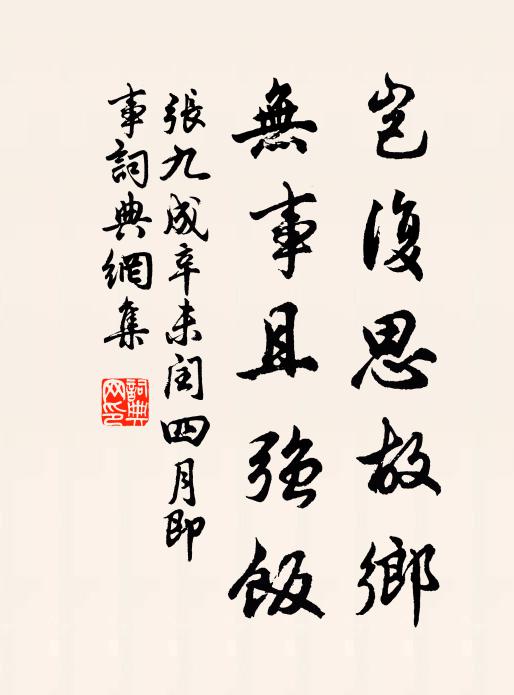 豈復思故鄉
無事且強飯
張九成辛未閏四月即
事詞典網集
詞典網印